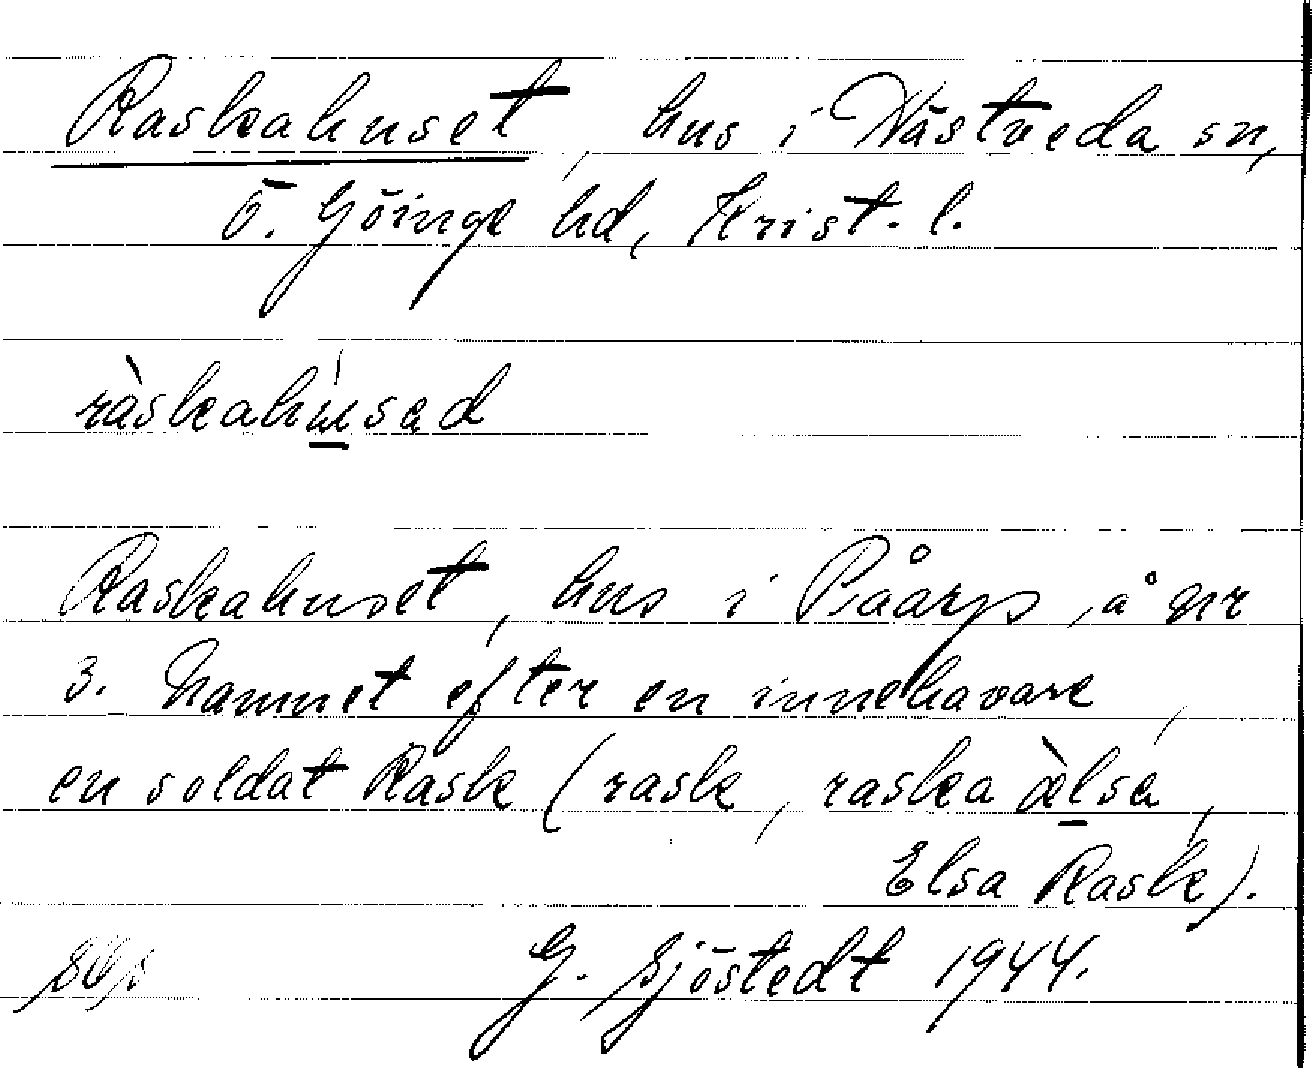 Raskahuset, hus i Västveda sn,
Ö. Göinge hd, Krist. l.
ràskahùsad
Raskahuset, hus i Påarp, å nr
3. Namnet efter en innehavare,
en soldat Rask (rask, raska ælsa,
Elsa Rask).
G. Sjöstedt 1944.